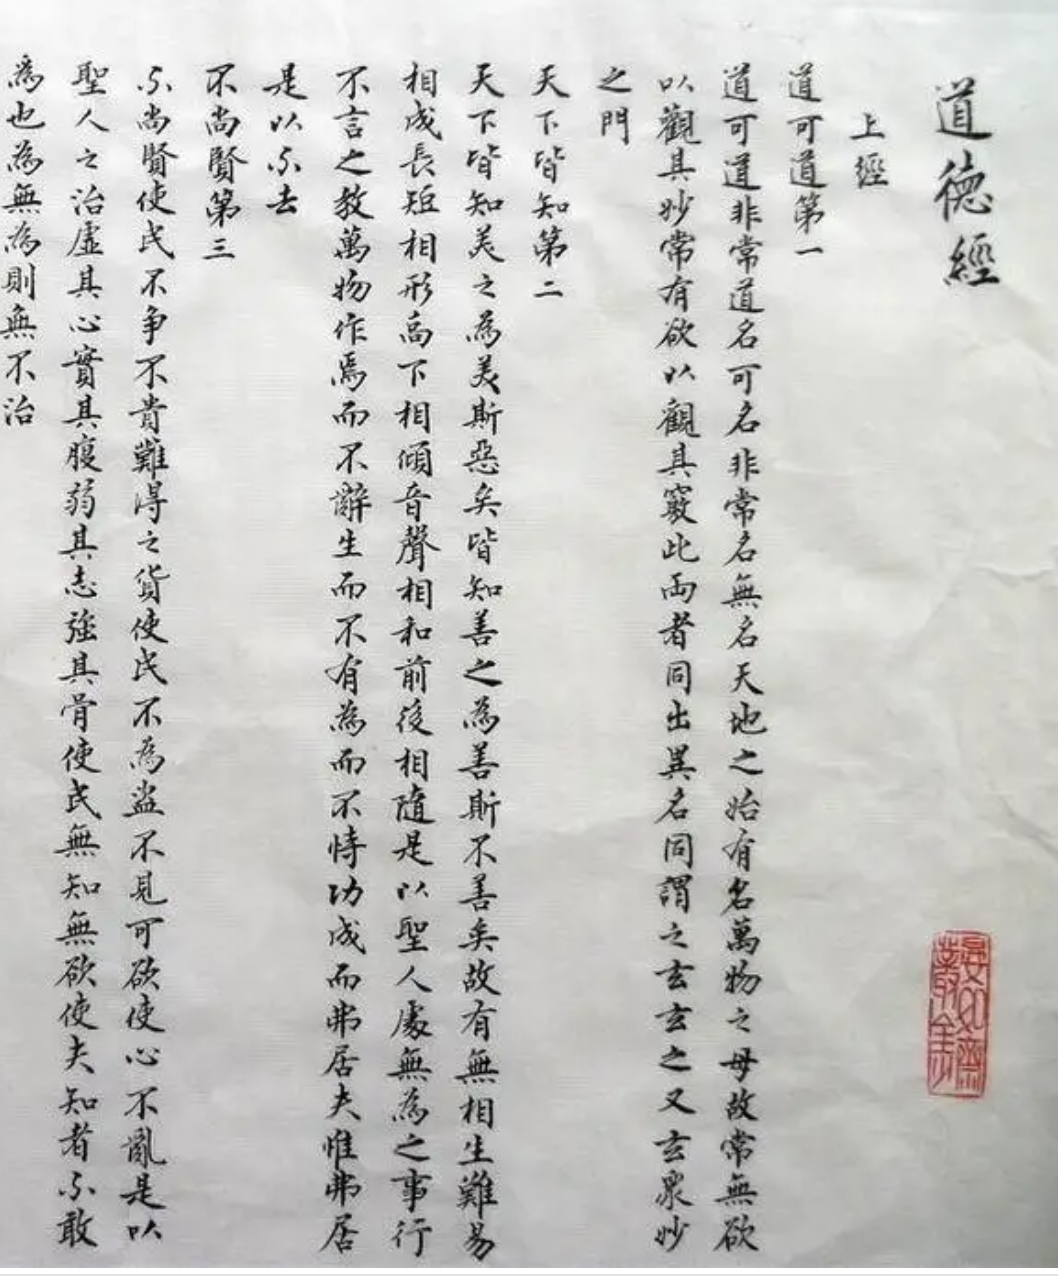 道德經
上經
道可道第一
道可道非常道名可名非常名無名天地之始有名萬物之母故常無欲
以觀其妙常有欲以觀其竅此兩者同出異名同謂之玄玄之又玄衆妙
之門
天下皆知第二
天下皆知美之為美斯惡矣皆知善之為善斯不善矣故有無相生難易
相成長短相形高下相傾音聲相和前後相隨是以聖人處無為之事行
不言之教萬物作焉而不辭生而不有為而不恃功成而弗居夫惟弗居
是以不去
不尚賢第三
不尚賢使民不争不貴難得之貨使民不為盜不見可欲使心不亂是以
聖人之治虛其心實其腹弱其志強其骨使民無知無欲使夫知者不敢
為也為無為則無不治